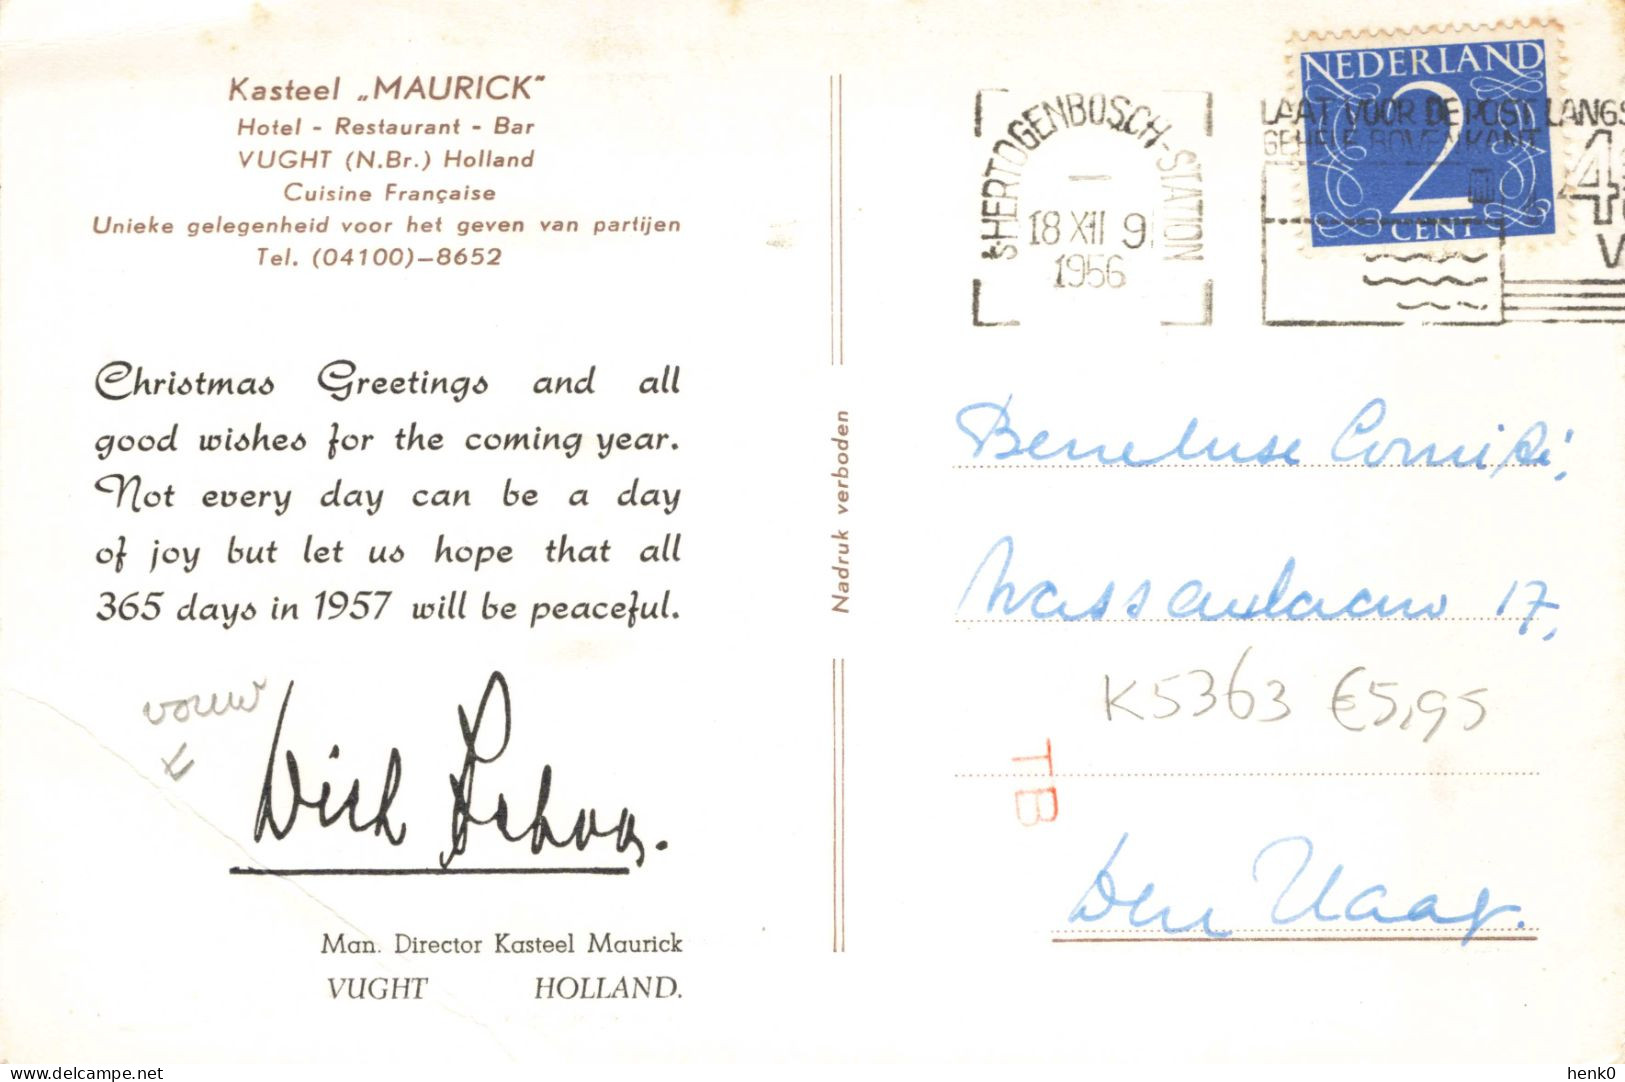 Kasteel „MAURICK"
Hotel - Restaurant - Bar
VUGHT (N.Br.) Holland
Cuisine Française
Unieke gelegenheid voor het geven van partijen
Tel. (04100)–8652
Christmas Greetings and all
good wishes for the coming year.
Not every day can be a day
of joy but let us hope that all
365 days in 1957 will be peaceful.
vouw
Man. Director Kasteel Maurick
VUGHT HOLLAND.
Nadruk verboden
's HERTOGENBOSCH-STATION
18 XII 9
1956
LAAT VOOR DE POST LANGS
GEHELE BOVENKANT
4
V
NEDERLAND
2
CENT
Wassenaarlaan 17,
K5363 €5,95
TB
Den Haag.
delcampe.net
henk0